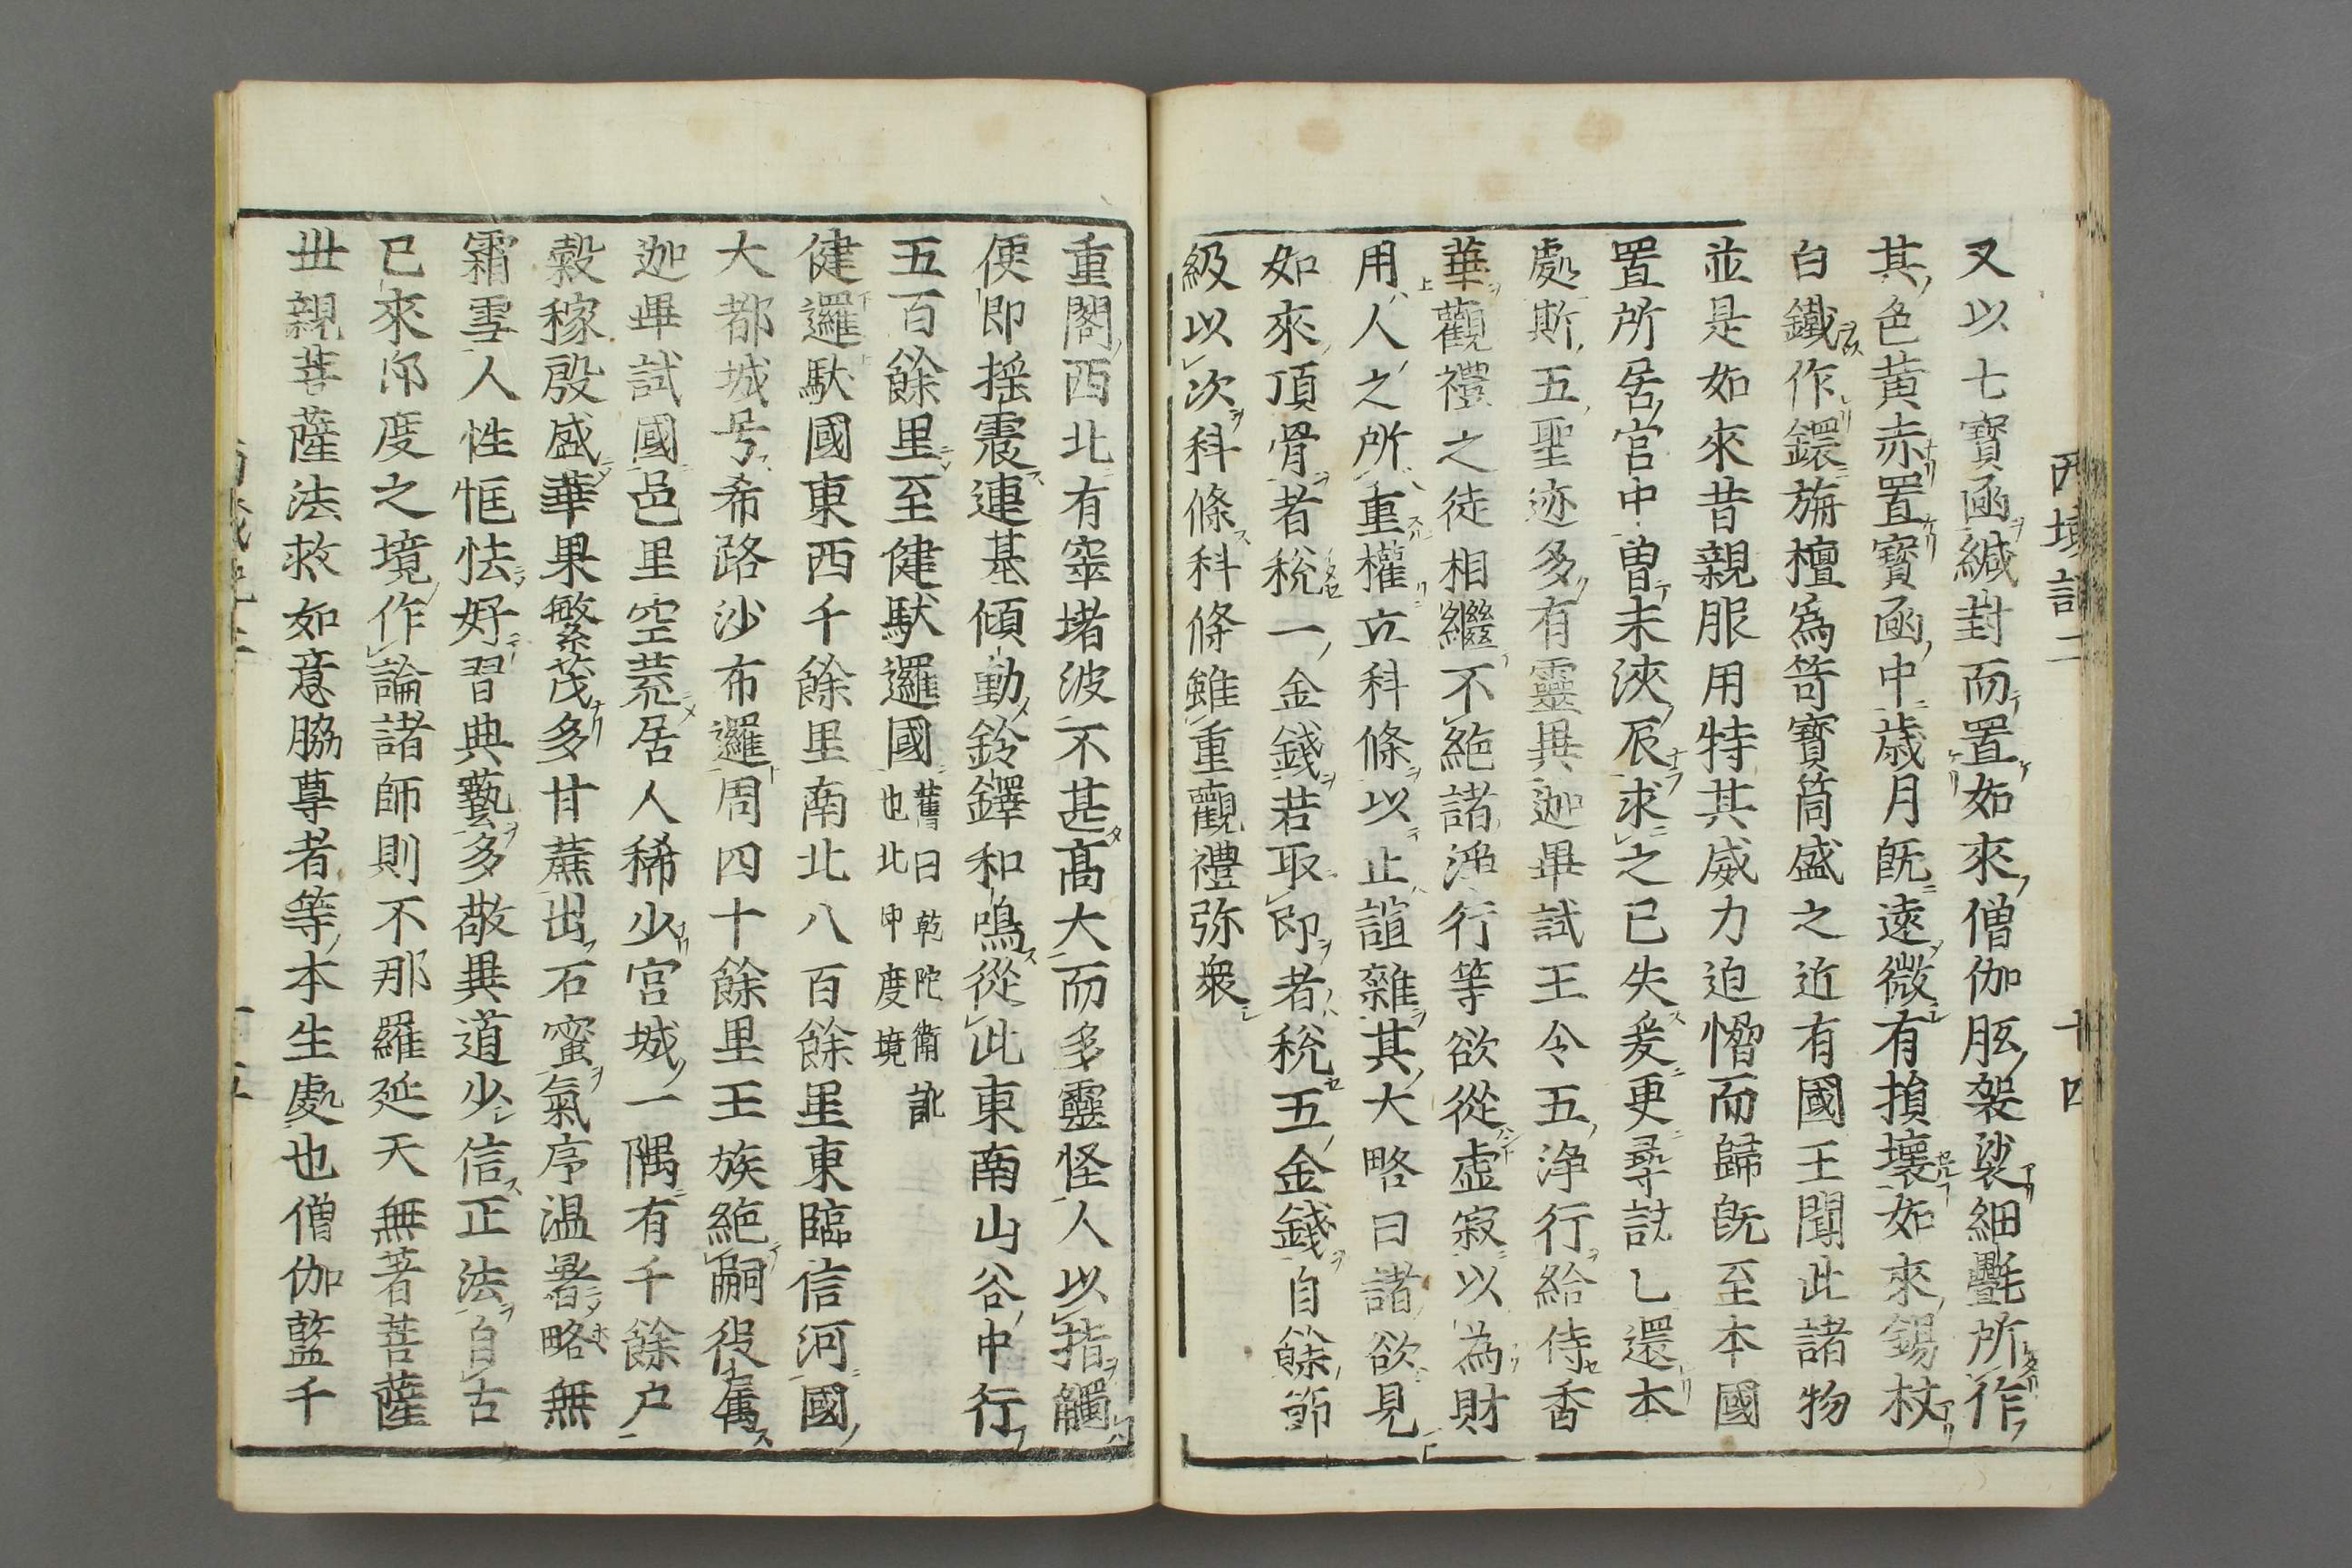 西域記二 廿四
又以七寶凾緘封而置如來僧伽胝袈裟細㲲所作
其色黄赤置寳凾中歳月既遠微有損壞如來錫杖
白鐵作鐶旃檀爲笴寳筒盛之近有國王聞此諸物
並是如來昔親服用特其威力迫愶而歸既至本國
置所居宮中曽未浹辰求之已失爰更尋訪乚還本
處斯五聖迹多有靈異迦畢試王令五浄行給侍香
華觀禮之徒相繼不絶諸浄行等欲從虚寂以為財
用人之所重權立科條以止諠雜其大略曰諸欲見
如來頂骨者税一金錢若取印者税五金錢自餘節
級以次科條科條雖重觀禮弥衆
重閣西北有窣堵波不甚髙大而多靈怪人以指觸
便即揺震連基傾動鈴鐸和鳴從此東南山谷中行
五百餘里至健馱邏國舊曰乾陀衛訛也北印度境
健邏馱國東西千餘里南北八百餘里東臨信河國
大都城号希路沙布邏周四十餘里王族絶嗣役属
迦畢試國邑里空荒居人稀少宮城一隅有千餘户
糓稼殷盛華果繁茂多甘蔗出石蜜氣序温暑略無
霜雪人性恇怯好習典藝多敬異道少信正法自古
已來印度之境作論諸師則不那羅延天無著菩薩
丗親菩薩法救如意脇尊者等本生處也僧伽藍千